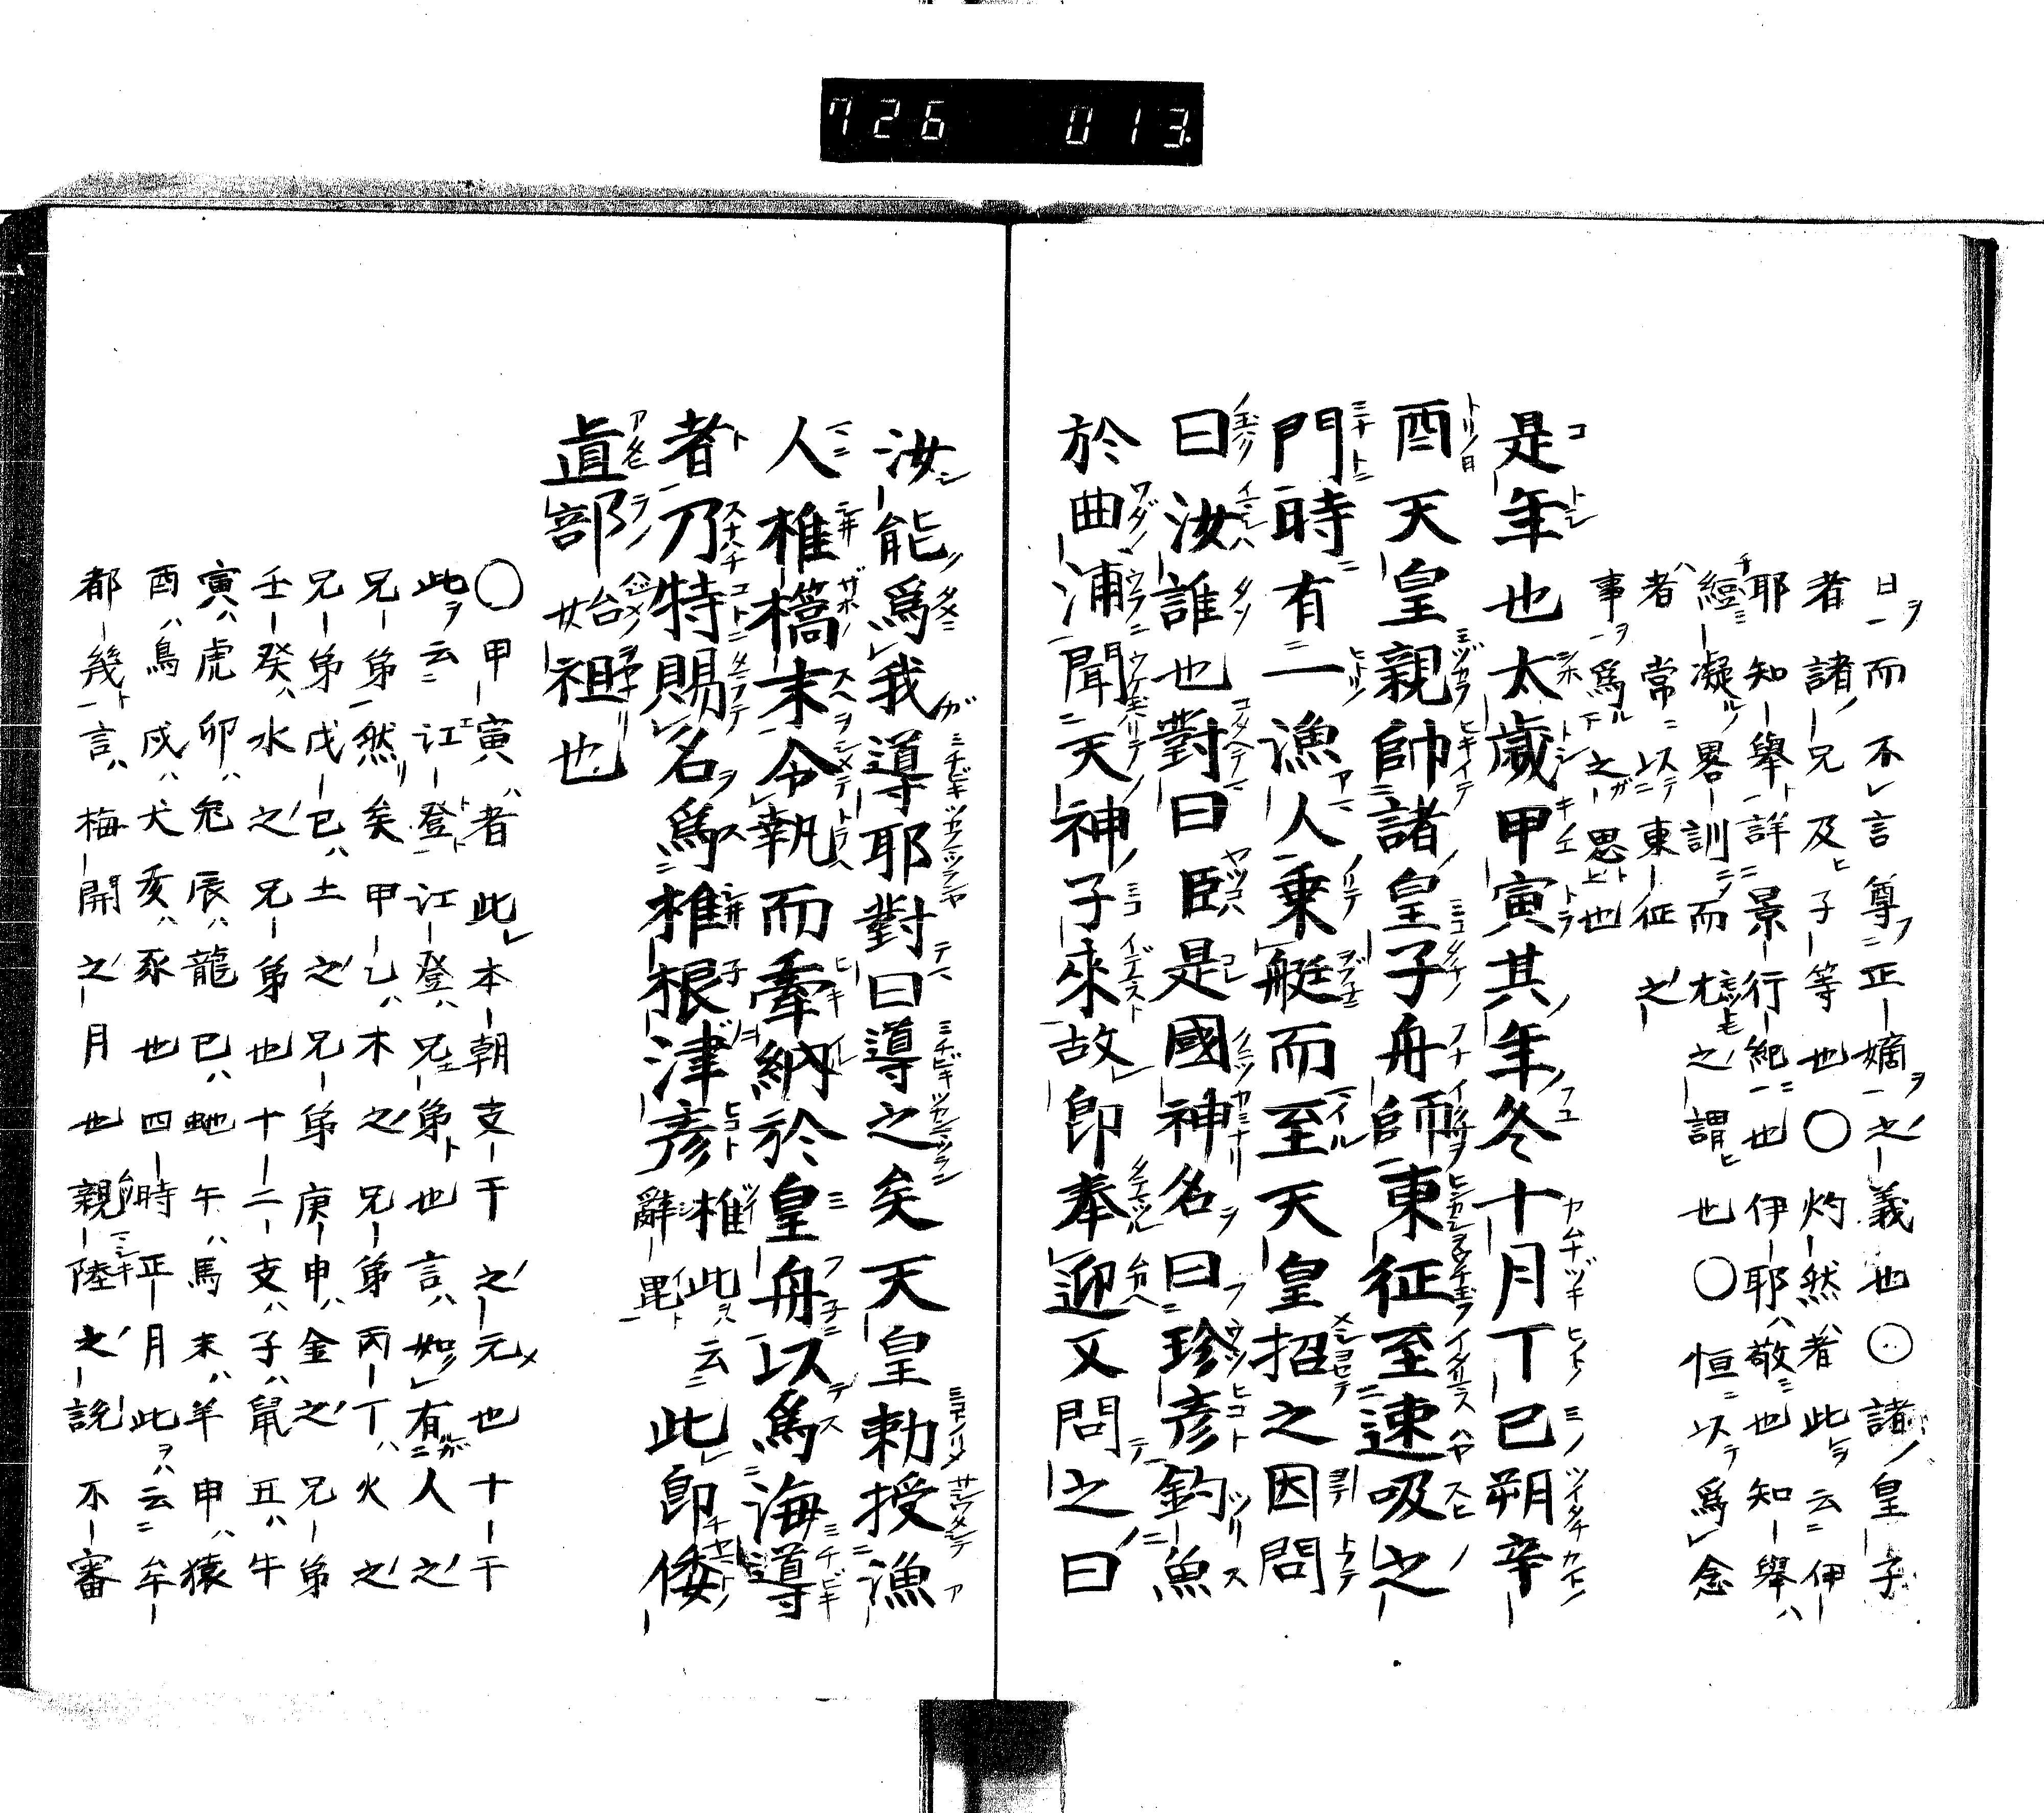 726 013
日而不言尊正嫡之義也〇諸皇子
者諸兄及子等也〇灼然者此云伊
耶知舉詳景行紀也伊耶敬也知舉
經凝畧訓而尤之謂也〇恒以爲念
者常以東征之
事爲之思也
是年也太歳甲寅其年冬十月丁巳朔辛
酉天皇親帥諸皇子舟師東征至速吸之
門時有一漁人乗艇而至天皇招之因問
曰汝誰也對曰臣是國神名曰珍彦釣魚
於曲浦聞天神子來故即奉迎又問之曰
汝能爲我導耶對曰導之矣天皇勅授漁
人椎檮末令執而牽納於皇舟以爲海導
者乃特賜名爲椎根津彦椎此云辭毘此即倭
直部始祖也
〇甲寅者此本朝支干之元也十干
此云江登江登兄弟也言如有人之
兄弟然矣甲乙木之兄弟丙丁火之
兄弟戊己土之兄弟庚申金之兄弟
壬癸水之兄弟也十二支子鼠丑牛
寅虎卯兔辰龍巳虵午馬未羊申猿
酉鳥戌犬亥豕也四時正月此云牟
都幾言梅開之月也親陸之說不審